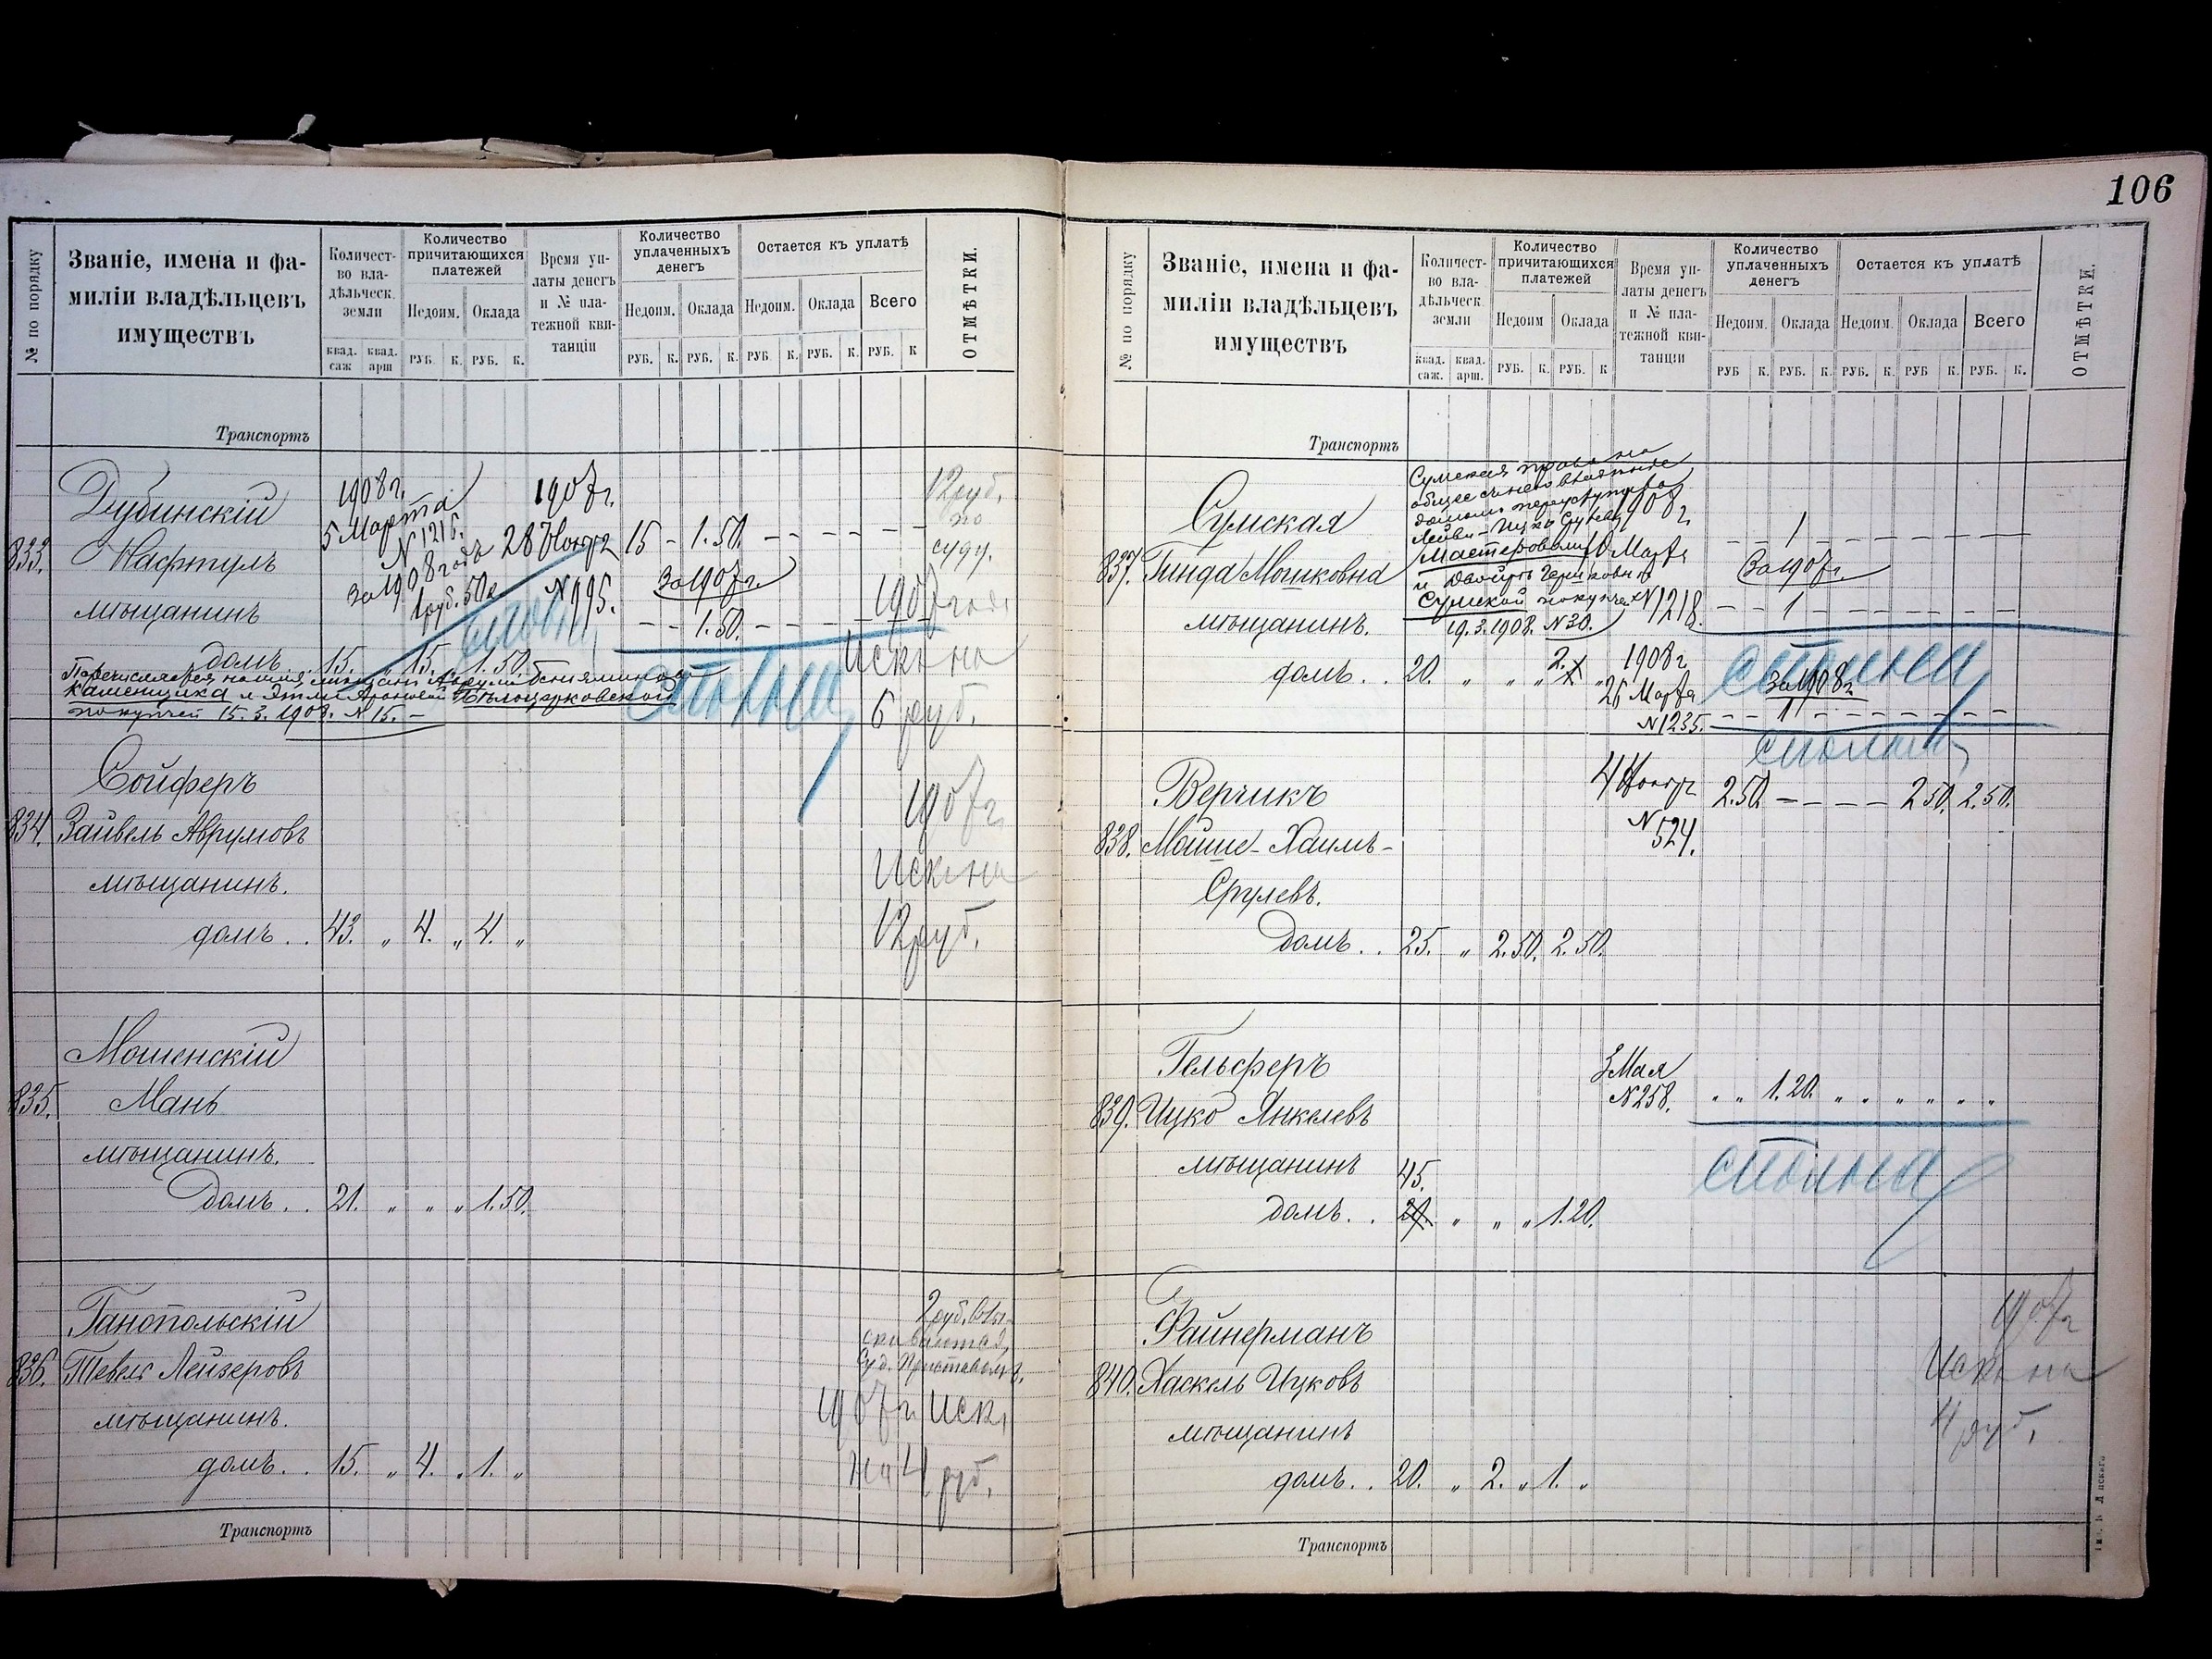 106
№ по порядку
Званіе, имена и фа-
миліи владѣльцевъ
имуществъ
Количест-
во вла-
дѣльческ.
земли
квад. саж
квад. арш
Количество
причитающихся
платежей
Недоим. Оклада
РУБ. К. РУБ. К.
Время уп-
латы денегъ
и № пла-
тежной кви-
танціи
Количество
уплаченныхъ
денегъ
Недоим. Оклада
РУБ. К. РУБ. К.
Остается къ уплатѣ
Недоим. Оклада Всего
РУБ К. РУБ. К. РУБ. К
ОТМѢТКИ.
Транспортъ
833.
Дубинскій
Нафтулъ
мѣщанинъ
домъ . . 15. „ 15. 1.50.
1908 г.
5 Марта
N 1215.
За 1908 годъ
1 руб. 50 к
1907 г.
28 Ноября
N 995.
15 - 1.50. - - - - - -
За 1907 г.
- - 1.50. - - - - - -
сполна
сполна
12 руб.
по
суду.
1907 года
Искъ на
6 руб.
Перечисляется на имя мѣщанъ Аврума Беніяминова
Каменщика и Этли Ароновой Бѣлоцарковского
покупчей 15.3.1908. N 15. -
834.
Сойферъ
Зайвель Аврумовъ
мѣщанинъ.
домъ . . 43. „ 4. „ 4. „
1907 г.
Искъ на
12 руб.
835.
Мошенскій
Мань
мѣщанинъ.
Домъ . . 21. „ „ „ 1.50.
836.
Ганопольскій
Тевель Лейзеровъ
мѣщанинъ.
домъ . . 15. „ 4. „ 1. „
2 руб. взы-
скиваются
Суд. Приставомъ.
1907 г. Искъ
на 4 руб.
Транспортъ
№ по порядку
Званіе, имена и фа-
миліи владѣльцевъ
имуществъ
Количест-
во вла-
дѣльческ.
земли
квад. саж.
квад. арш.
Количество
причитающихся
платежей
Недоим Оклада
РУБ. К. РУБ. К
Время уп-
латы денегъ
и № пла-
тежной кви-
танціи
Количество
уплаченныхъ
денегъ
Недоим. Оклада
РУБ К. РУБ. К.
Остается къ уплатѣ
Недоим. Оклада Всего
РУБ. К. РУБ К. РУБ. К.
ОТМѢТКИ.
Транспортъ
837.
Сумская
Гинда Мошковна
мѣщанинъ.
домъ . . 20. „ „ „ 2. 1 „
Сумская права на
общее с нею владѣніе
домомъ переуступила
Лейви-Ицко Срулеву
Мастеровому
и Двойрѣ Гершковнѣ
Сумской покупчей
19.3.1908. N 30.
1908 г.
10 Марта
N 1218.
- - 1 - - - - - -
За 1907 г.
- - 1 - - - - - -
сполна
1908 г
26 Марта
N 1235.
За 1908 г
- - 1 - - - - - -
сполна
838.
Верчикъ
Мойше-Хаимъ-
Срулевъ.
Домъ . . 25. „ 2.50. 2.50.
4 Ноября
N 524.
2.50. - - - - 2 50. 2.50.
839.
Гельферъ
Ицко Янкелевъ
мѣщанинъ 45.
домъ . . 29. „ „ „ 1.20.
3 Мая
N 258.
„ „ 1.20. „ „ „ „ „ „
сполна
840.
Файнерманъ
Хаскель Ицковъ
мѣщанинъ
домъ . . 20. „ 2. „ 1. „
1907 г
Искъ на
4 руб.
Транспортъ